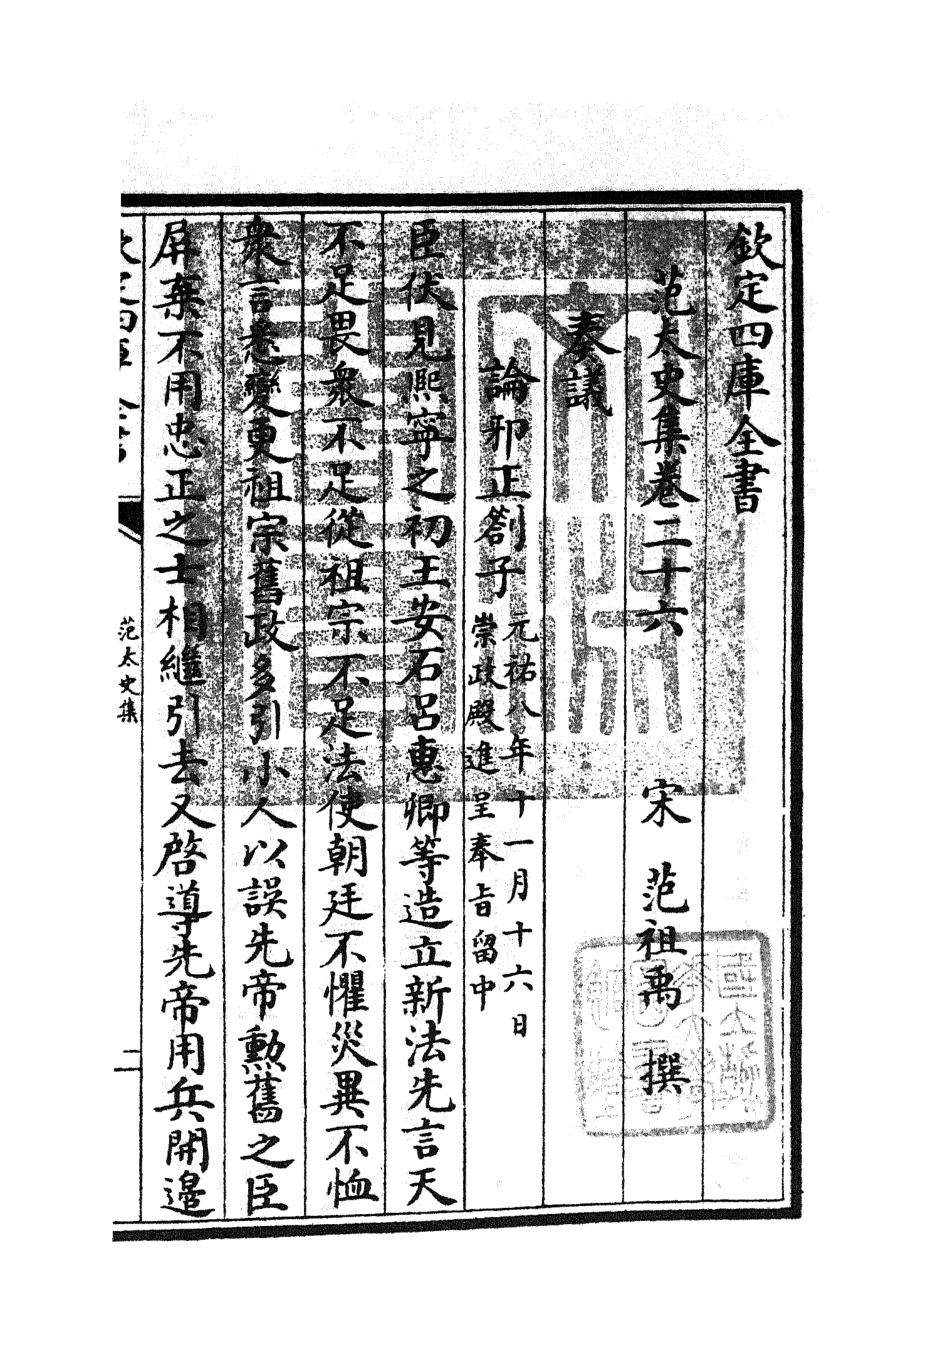 欽定四庫全書
范太史集卷二十六
宋 范祖禹 撰
奏議
論邪正劄子
元祐八年十一月十六日
崇政殿進呈奉旨留中
臣伏見熙寧之初王安石呂惠卿等造立新法先言天
不足畏衆不足從祖宗不足法使朝廷不懼災異不恤
衆言悉變更祖宗舊政多引小人以誤先帝勲舊之臣
屏棄不用忠正之士相繼引去又啓導先帝用兵開邊
范太史集